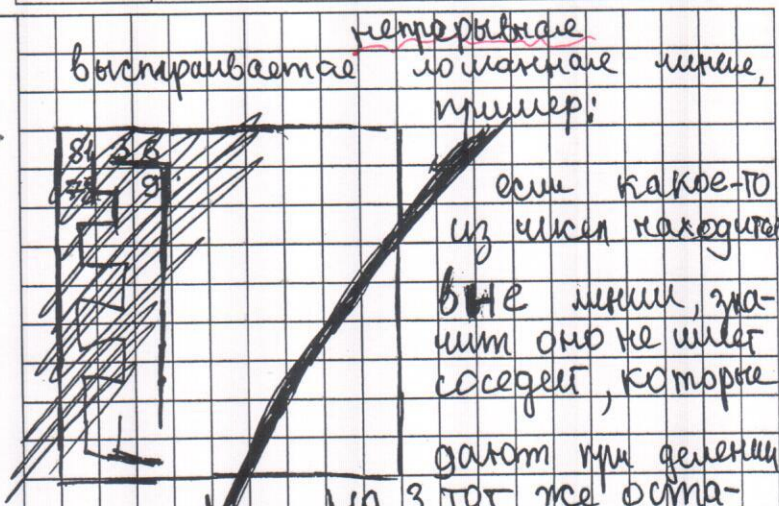 непрерывная
выстраивается ломанная линия,
пример:
если какое-то
из чисел находится
вне линии, зна-
чит оно не имеет
соседей, которые
дают при делении
на 3 тот же оста-